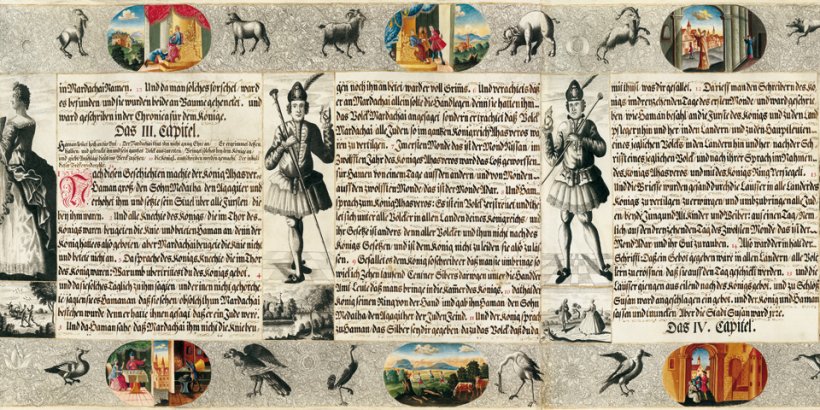 in Mardachai Namen. Und da man solches forschet, ward
es befunden und sie wurden beide an Bäume gehencket, und
ward geschriben in der Chronica für dem Könige.
Das III. Capitel.
Nach diesen Geschichten machte der König Ahasverus
Haman groß den Sohn Medatha den Agagiter und
erhöhet ihn und setzte sein Stuel über alle Fürsten die
bey ihm waren. Und alle Knechte des Königs die im Thor des
Königs waren beugeten die Knie und beteten Haman an denn der
König hattes also geboten aber Mardachai beugete die Knie nicht
und betete nicht an. Da sprachen des Königs Knechte die im Thor
des Königs waren: Warumb ubertrittestu des Königs gebot.
und da sie solches Täglich zu ihm sagten und er ihnen nicht gehorchte
sagten sie Haman an daß sie sehen ob solch ihun Mardachai
bestehen wurde denn er hatte ihnen gesagt daß er ein Jude were.
Und da Haman sahe daß Mardachai ihm nicht die Knie beu
gen noch ihn an betet ward er voll Grims. Und verachtets daß
er an Mardachai allein solte die Hand legen denn sie hatten ihm
das Volck Mardachai angesagt sondern er trachtet daß Volck
Mardachai alle Juden so im gantzen Königreich Ahasveros wa
ren zu vertilgen. Im ersten Mond das ist der Mond Nissan im
zwölfften Jahr des Königes Ahasveros ward das Los geworffen
für Hamen von einem Tage auff den andern und von Monden
auff den zwölfften Monde das ist der Monde Adar. Und Ham
sprach zum König Ahasveros: Es ist ein Volck zerstreuet und thei
let sich unter alle Völcker in allen Landen deines Königreichs und
ihr Gesetze ist anders denn aller Völcker und thun nicht nach des
Königs Gesetzen und ist dem König nicht zu leiden sie also zu laß
sen. Gefallet es dem König so schreibe er daß man sie umbringe so
wiel ich Zehen tausend Centner Silbers darwegen unter die Hand der
Amt Leute daß mans bringe in die Kamer des Königs. Da that der
König seinen Ring von der Hand und gab ihn Haman den Sohn
Medatha den Agagiter der Jüden Feind. Und der König sprach
zu Haman: das Silber sey dir gegeben dazu das Volck daß du da
mit thust was dir gefället. Da rieff man den Schreibern des Kö
nigs im drenzehenden Tage des ersten Monde und ward geschrie
ben wie Haman befahl an die Fürsten des Königs und zu den Land
pflegern hin und her in den Landen und zu den Hauptleuten
eines jeglichen Volcks in den Landen hin und her nach der Sch
rifft eines jeglichen Volck und nach ihrer Sprach im Nahmen
des Königs Ahasveros und mit des Königs Ring Versiegelt.
Und die Brieffe wurden gesand durch die Läuffer in alle Lande des
Königs zu vertilgen zu erwürgen und umbzubringen alle Jü
den beide Jung und Alt Kinder und Weiber: auf einen Tag Nem
lich auff den drenzehenden Tag des Zwölfften Monde das ist der
Mond Adar und ihr Gut zu rauben. Also ward der in halt der
Schrifft: Daß ein Gebot gegeben ward in allen Ländern allen Völc
kern zu eröffnen daß sie auff den Tag geschickt werden. und die
Läuffer giengen aus eilend nach des Königs gebot und zu Schloß
Susan ward angeschlagen ein gebot und der König und Haman
sassen und truncken Aber die Stadt Susan ward irre.
Das IV. Capitel.